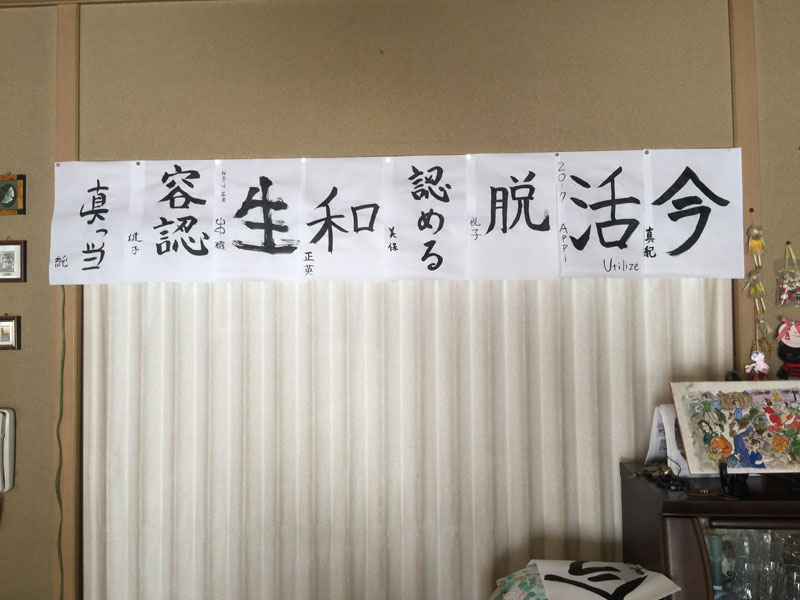 今
真紀
活
Utilize
2017 APPI
脱
悦子
認める
美保
和
正英
生
容認
健子
真っ当
純